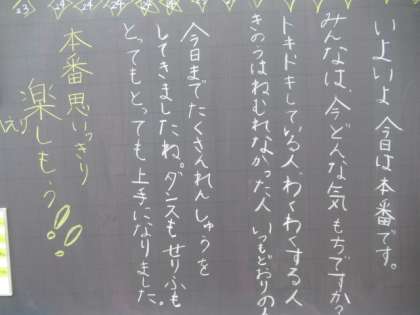 いよいよ今日は本番です。
みんなは、今どんな気もちですか?
ドキドキしている人、わくわくする人
きのうはねむれなかった人 いつもどおりの人
今日までたくさんれんしゅうを
してきましたね。ダンスもせりふも
とってもとっても上手になりました。
本番思いっきり
楽しもう!!